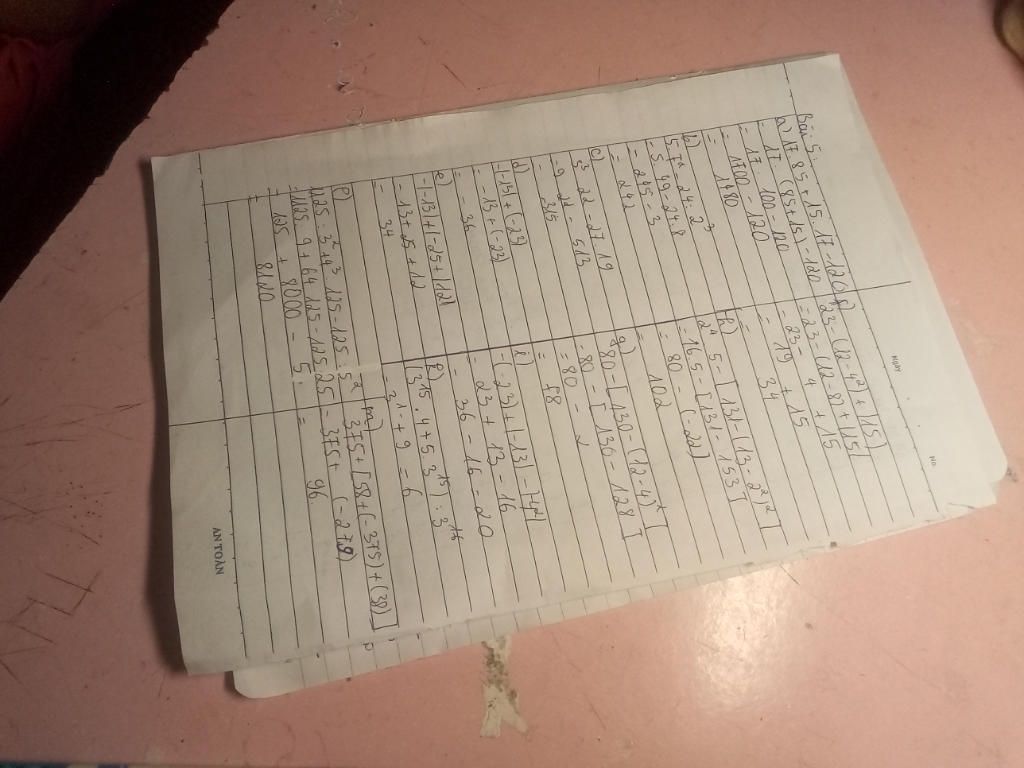 Bài 5:
a) 17 85 + 15. 17 - 120
= 17 (85+15) - 120
= 17 100 - 120
= 1700 - 120
= 1480
b) 5 7² - 24 2³
= 5 49 - 24 8
= 245 - 3
= 242
c) 3³ 22 - 27 19
= 9 22 - 513
= 315
d) |-13| + (-23)
= -13 + (-23)
= -36
e) -|-13| + |-25 + |12|
= -13 + 25 + 12
= 34
125 - 3² + 4³ 125 - 125 5²
= 125 9 + 64 125 - 125 25
= 125 + 8000 - 5
= 8120
g) 23 - (12 - 4² + |15|
= 23 - (12 - 8) + |15|
= 23 - 4 + 15
= 19 + 15
= 34
h) 2⁴ 5 - [131 - (13 - 2²)²]
= 16 5 - [131 - 153]
= 80 - (-22)
= 102
g) 80 - [130 - (12 - 4)²]
= 80 - [130 - 128]
= 80 - 2
= 78
i) (-23) + |-13| - |4²|
= 23 + 13 - 16
= 36 - 16 - 20
k) (3¹⁵ . 4 + 5 3¹⁵) : 3¹⁴
= 3¹ + 9 = 6
m) 375 - [58 + (-375) + (38)]
= 375 + (-279)
= 96
NGÀY
NO.
AN TOÀN